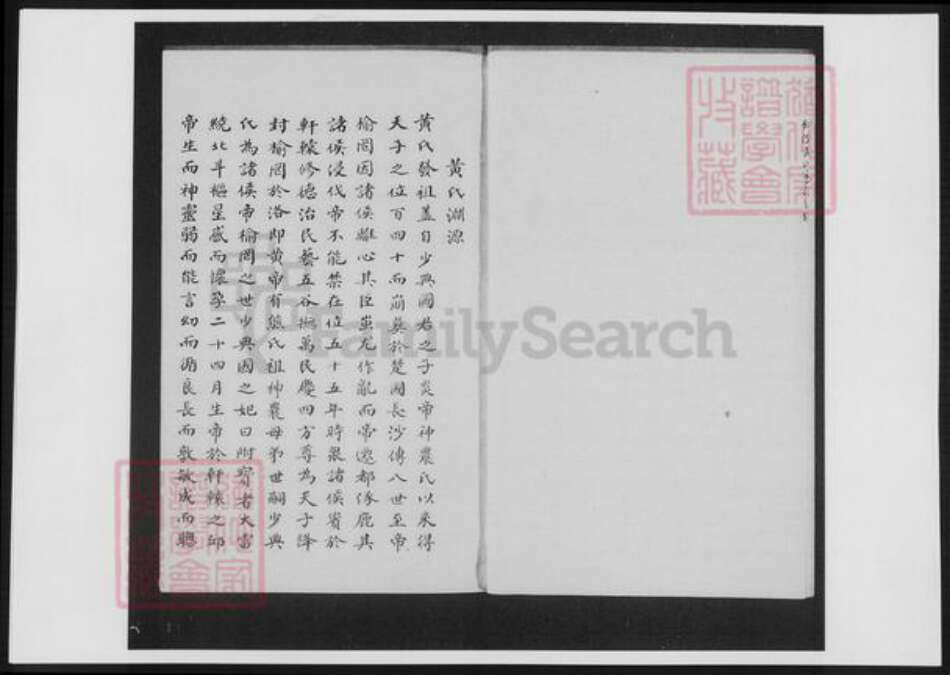 黃氏淵源
黃氏發祖蓋自少典國君之子炎帝神農氏以來得
天子之位百四十而崩葬於楚國長沙傳八世至帝
榆罔因諸侯離心其臣蚩尤作亂而帝遜都涿鹿其
諸侯浸伐帝不能禁在位五十五年時眾諸侯賓於
軒轅修德治民藝五谷撫萬民慶四方尊為天子降
封榆罔於洛即黃帝有熊氏祖神農母弟世嗣少典
氏為諸侯帝榆罔之世少典國之妃曰附寶者大電
繞北斗樞星感而懷孕二十四月生帝於軒轅之邱
帝生而神靈弱而能言幼而循良長而敦敏成而聰
譜學會
收藏
FamilySearch